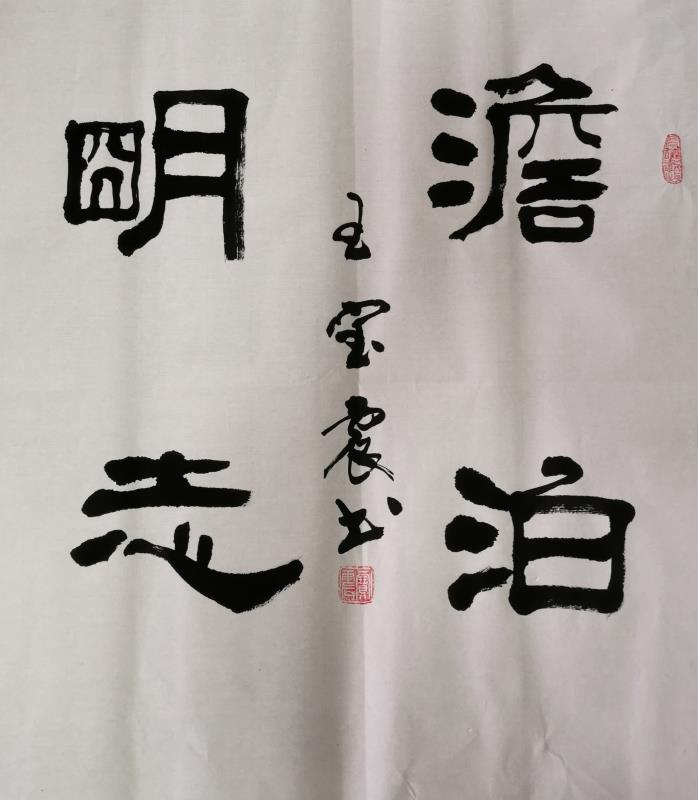 澹泊
明志
王宝震书